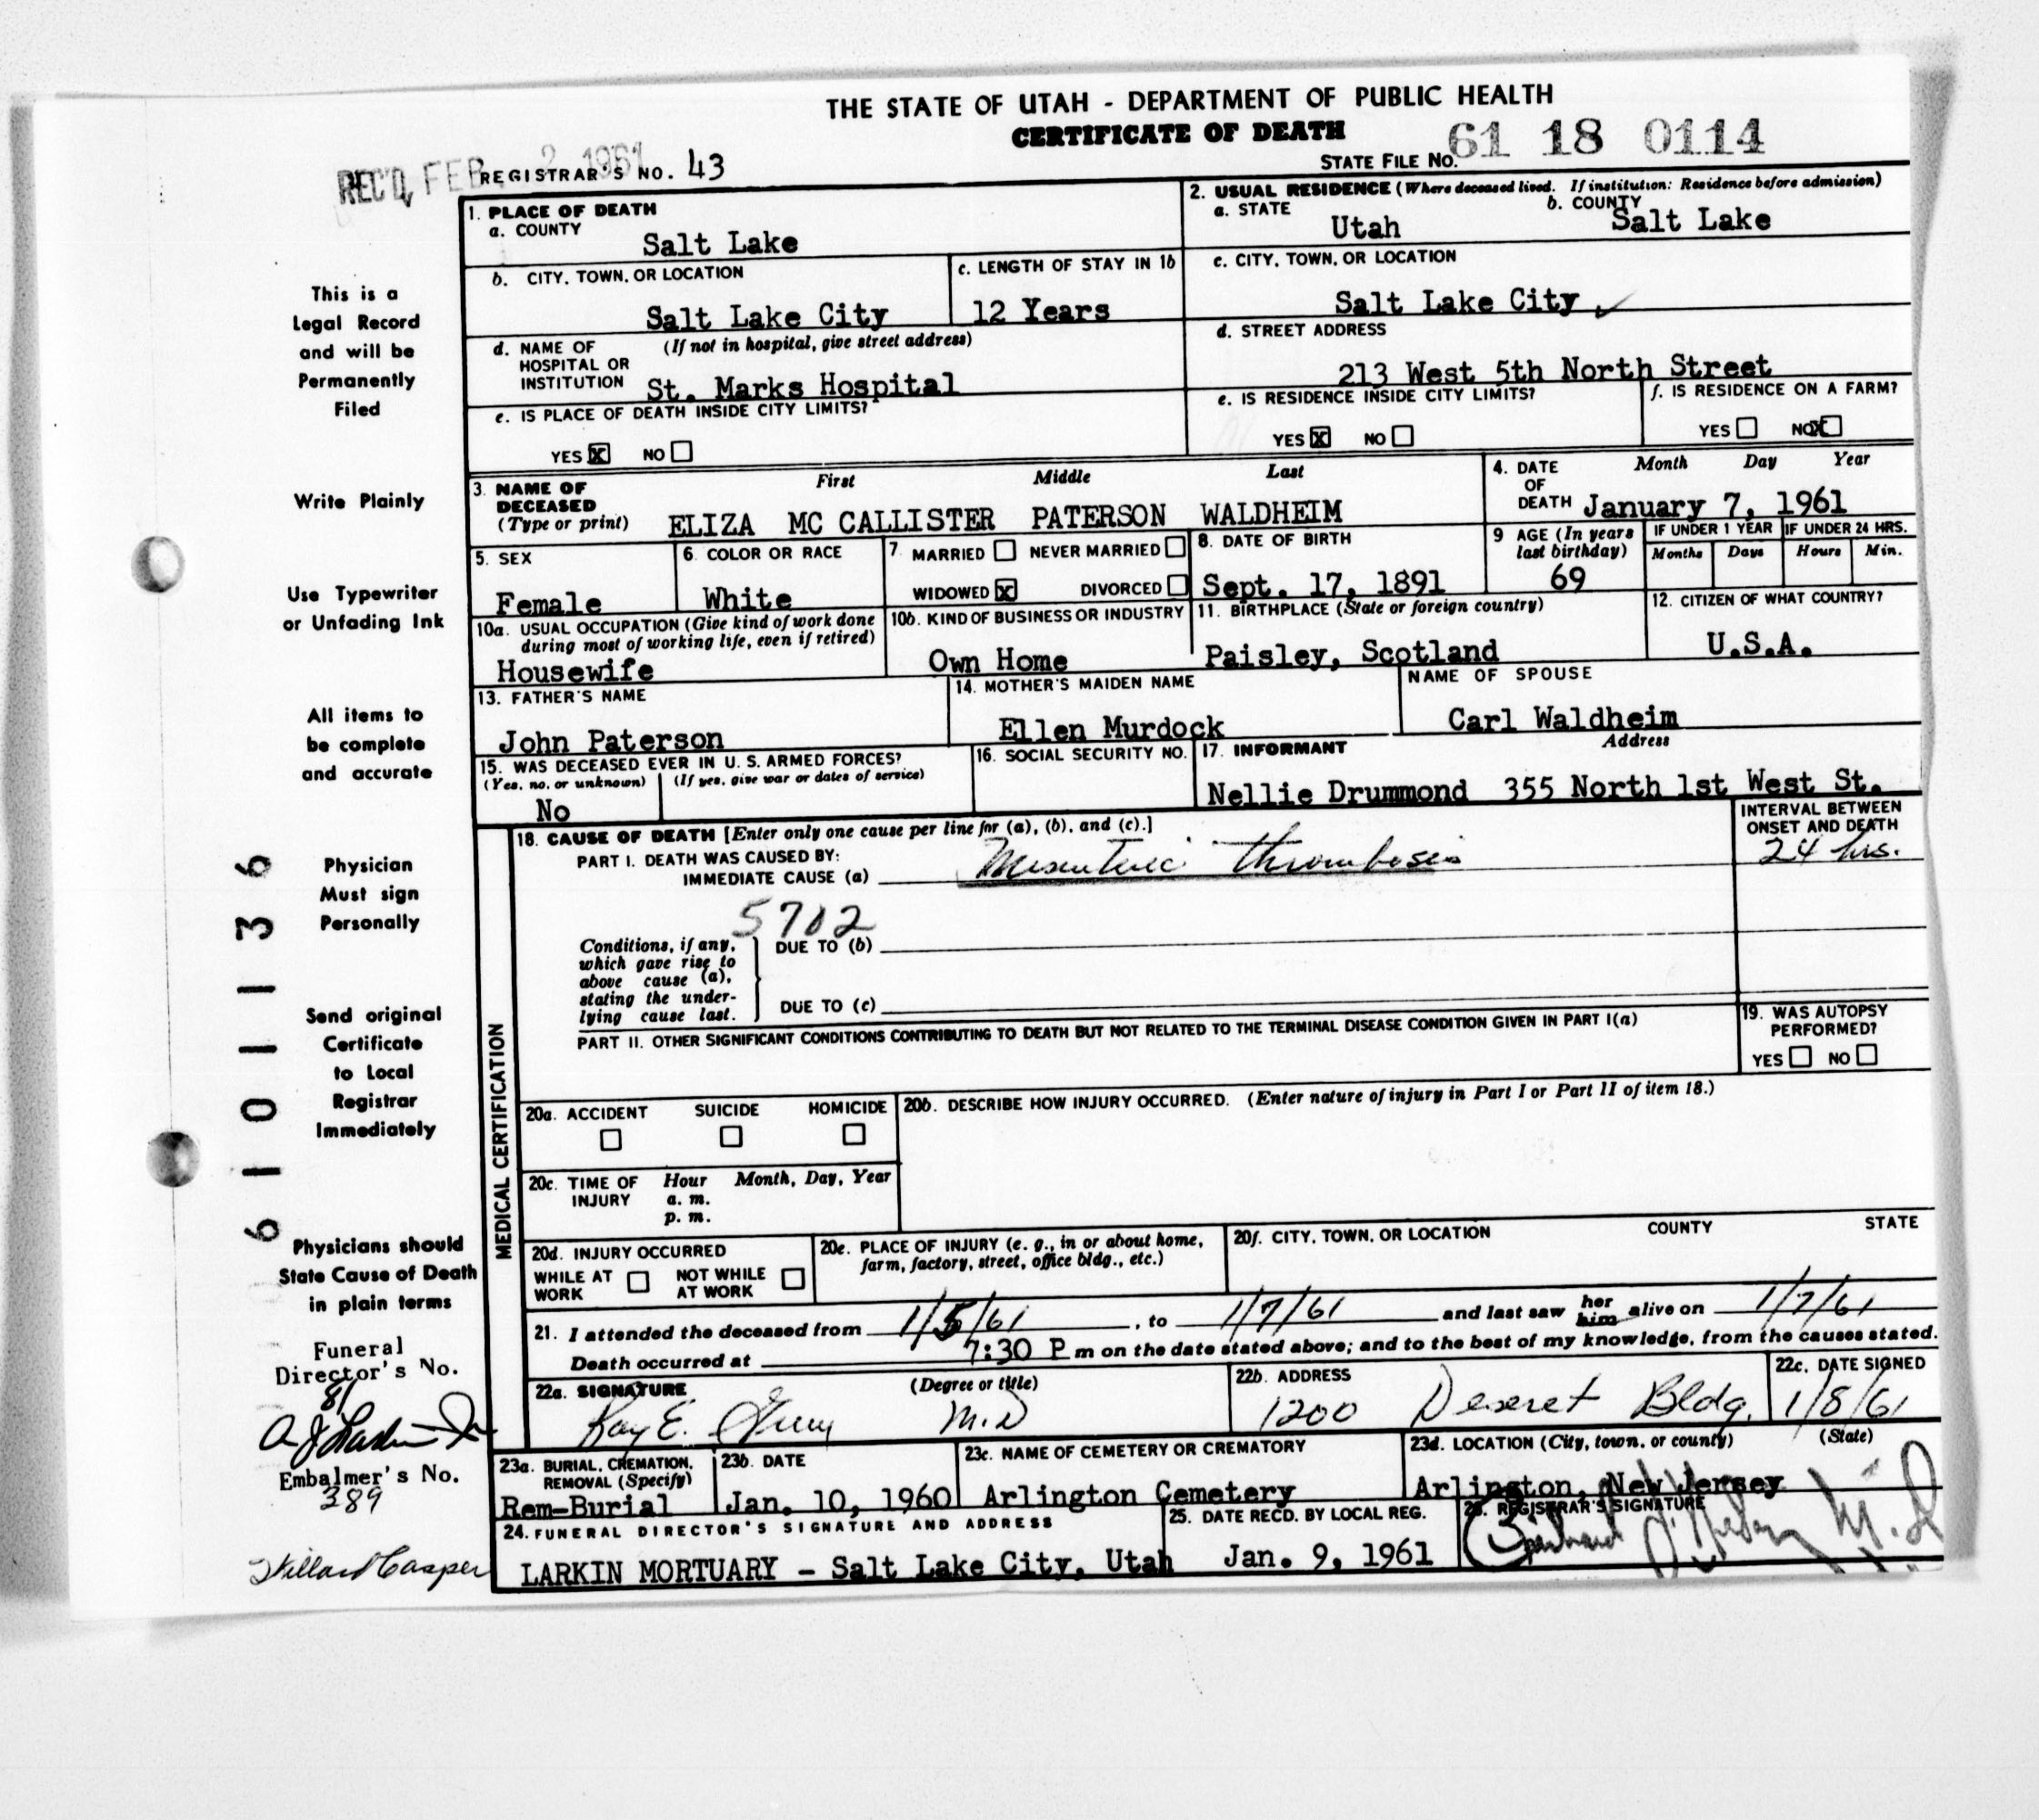 THE STATE OF UTAH - DEPARTMENT OF PUBLIC HEALTH
CERTIFICATE OF DEATH
REC'D, FEB. 2 1961 REGISTRAR'S NO. 43
STATE FILE No. 61 18 0114
1. PLACE OF DEATH
a. COUNTY
Salt Lake
2. USUAL RESIDENCE (Where deceased lived. If institution: Residence before admission)
a. STATE b. COUNTY
Utah Salt Lake
b. CITY, TOWN, OR LOCATION
Salt Lake City
c. LENGTH OF STAY IN 1b
12 Years
c. CITY, TOWN, OR LOCATION
Salt Lake City
d. NAME OF HOSPITAL OR INSTITUTION (If not in hospital, give street address)
St. Marks Hospital
d. STREET ADDRESS
213 West 5th North Street
e. IS PLACE OF DEATH INSIDE CITY LIMITS?
YES X NO
e. IS RESIDENCE INSIDE CITY LIMITS?
YES X NO
f. IS RESIDENCE ON A FARM?
YES NO X
3. NAME OF DECEASED (Type or print)
First Middle Last
ELIZA MC CALLISTER PATERSON WALDHEIM
4. DATE OF DEATH Month Day Year
January 7, 1961
5. SEX
Female
6. COLOR OR RACE
White
7. MARRIED NEVER MARRIED
WIDOWED X DIVORCED
8. DATE OF BIRTH
Sept. 17, 1891
9 AGE (In years last birthday)
69
IF UNDER 1 YEAR IF UNDER 24 HRS.
Months Days Hours Min.
10a. USUAL OCCUPATION (Give kind of work done during most of working life, even if retired)
Housewife
10b. KIND OF BUSINESS OR INDUSTRY
Own Home
11. BIRTHPLACE (State or foreign country)
Paisley, Scotland
12. CITIZEN OF WHAT COUNTRY?
U.S.A.
13. FATHER'S NAME
John Paterson
14. MOTHER'S MAIDEN NAME
Ellen Murdock
NAME OF SPOUSE
Carl Waldheim
15. WAS DECEASED EVER IN U. S. ARMED FORCES?
(Yes, no, or unknown) (If yes, give war or dates of service)
No
16. SOCIAL SECURITY NO.
17. INFORMANT Address
Nellie Drummond 355 North 1st West St.
18. CAUSE OF DEATH [Enter only one cause per line for (a), (b), and (c).]
INTERVAL BETWEEN ONSET AND DEATH
PART I. DEATH WAS CAUSED BY:
IMMEDIATE CAUSE (a) Mesenteric thrombosis 24 hrs.
5702
Conditions, if any, which gave rise to above cause (a), stating the underlying cause last.
DUE TO (b)
DUE TO (c)
PART II. OTHER SIGNIFICANT CONDITIONS CONTRIBUTING TO DEATH BUT NOT RELATED TO THE TERMINAL DISEASE CONDITION GIVEN IN PART I(a)
19. WAS AUTOPSY PERFORMED?
YES NO
MEDICAL CERTIFICATION
20a. ACCIDENT SUICIDE HOMICIDE
20b. DESCRIBE HOW INJURY OCCURRED. (Enter nature of injury in Part I or Part II of item 18.)
20c. TIME OF INJURY Hour a. m. p. m. Month, Day, Year
20d. INJURY OCCURRED
WHILE AT WORK NOT WHILE AT WORK
20e. PLACE OF INJURY (e. g., in or about home, farm, factory, street, office bldg., etc.)
20f. CITY, TOWN, OR LOCATION COUNTY STATE
21. I attended the deceased from 1/5/61, to 1/7/61 and last saw her him alive on 1/7/61
Death occurred at 7:30 P m on the date stated above; and to the best of my knowledge, from the causes stated.
22a. SIGNATURE (Degree or title)
Ray E. M.D
22b. ADDRESS
1200 Deseret Bldg.
22c. DATE SIGNED
1/8/61
23a. BURIAL, CREMATION, REMOVAL (Specify)
Rem-Burial
23b. DATE
Jan. 10, 1960
23c. NAME OF CEMETERY OR CREMATORY
Arlington Cemetery
23d. LOCATION (City, town, or county) (State)
Arlington, New Jersey
24. FUNERAL DIRECTOR'S SIGNATURE AND ADDRESS
LARKIN MORTUARY - Salt Lake City, Utah
25. DATE RECD. BY LOCAL REG.
Jan. 9, 1961
26. REGISTRAR'S SIGNATURE
M.D
This is a
Legal Record
and will be
Permanently
Filed
Write Plainly
Use Typewriter
or Unfading Ink
All items to
be complete
and accurate
Physician
Must sign
Personally
Send original
Certificate
to Local
Registrar
Immediately
Physicians should
State Cause of Death
in plain terms
61011136
Funeral
Director's No.
81
A J Larkin Jr
Embalmer's No.
389
Willard Casper